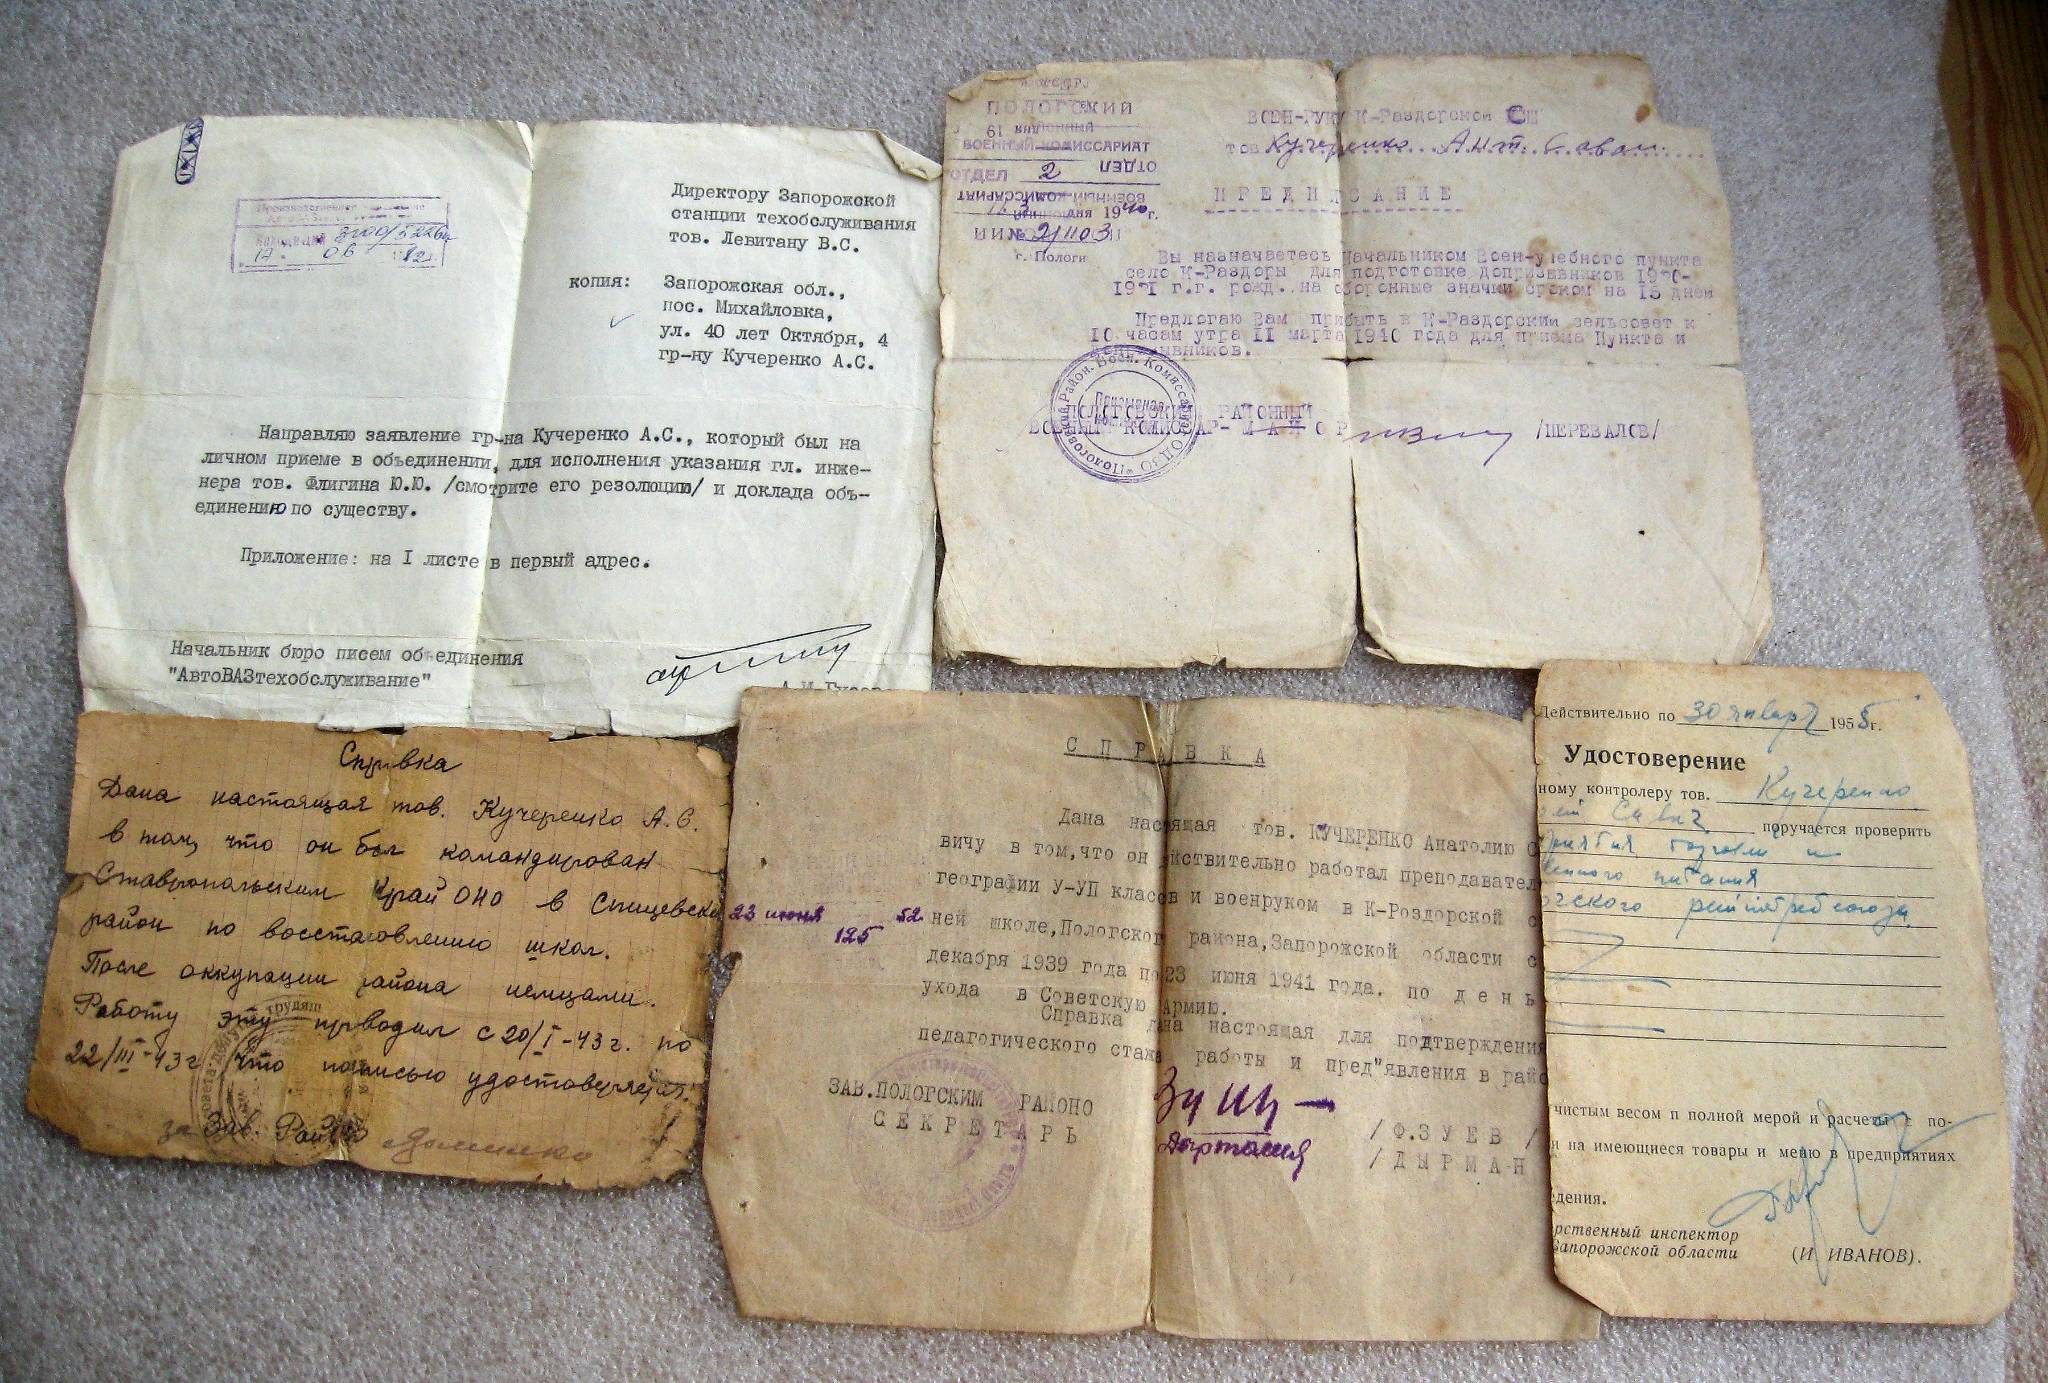 Директору Запорожской
станции техобслуживания
тов. Левитану В.С.
копия: Запорожская обл.,
пос. Михайловка,
ул. 40 лет Октября, 4
гр-ну Кучеренко А.С.
Направляю заявление гр-на Кучеренко А.С., который был на
личном приеме в объединении, для исполнения указания гл. инже-
нера тов. Флигина Ю.Ю. /смотрите его резолюцию/ и доклада объ-
единению по существу.
Приложение: на I листе в первый адрес.
Начальник бюро писем объединения
"АвтоВАЗтехобслуживание"
ПОЛОГСКИЙ
ВОЕННЫЙ КОМИССАРИАТ
ОТДЕЛ 2
1940 г.
№ 2/1103
г. Пологи
ВОЕН-РУКУ К-Раздорской СШ
тов Кучеренко Ант. Савел.
ПРЕДПИСАНИЕ
Вы назначаетесь Начальником Воен-учебного пункта
село К-Раздоры для подготовке допризывников 1920-
1921 г.г. рожд. на оборонные значки сроком на 15 дней
Предлогаю Вам прибыть в К-Раздорский сельсовет к
10 часам утра II марта 1940 года для приема Пункта и
ПОЛОГОВСКИЙ РАЙОННЫЙ
ВОЕННЫЙ КОМИСАР-МАЙОР /ПЕРЕВАЛОВ/
Справка
Дана настоящая тов. Кучеренко А.С.
в том, что он был командирован
Ставропольским КрайОНО в Спицевски
район по восстановлению школ.
После оккупации района немцами.
Работу эту проводил с 20/I-43г. по
22/III-43г что подписью удостоверяется.
за Зав. РайОНО
СПРАВКА
Дана настоящая тов. КУЧЕРЕНКО Анатолию С
вичу в том,что он действительно работал преподавател
географии У-УП классов и военруком в К-Роздорской с
23 июня 52. ней школе,Пологског района,Запорожской области с
125 декабря 1939 года по 23 июня 1941 года. по день
ухода в Советскую Армию.
Справка дана настоящая для подтверждения
педагогического стажа работы и пред"явления в райо
ЗАВ.ПОЛОГСКИМ РАЙОНО /Ф.ЗУЕВ/
СЕКРЕТАРЬ /ДЫРМАН
Действительно по 30 января 1955г.
Удостоверение
ному контролеру тов. Кучеренко
Савич поручается проверить
приятия торговли и
венного питания
райпотребсоюза
чистым весом п полной мерой и расчеты с по-
я на имеющиеся товары и меню в предприятиях
дения.
рственный инспектор
Запорожской области (И ИВАНОВ).